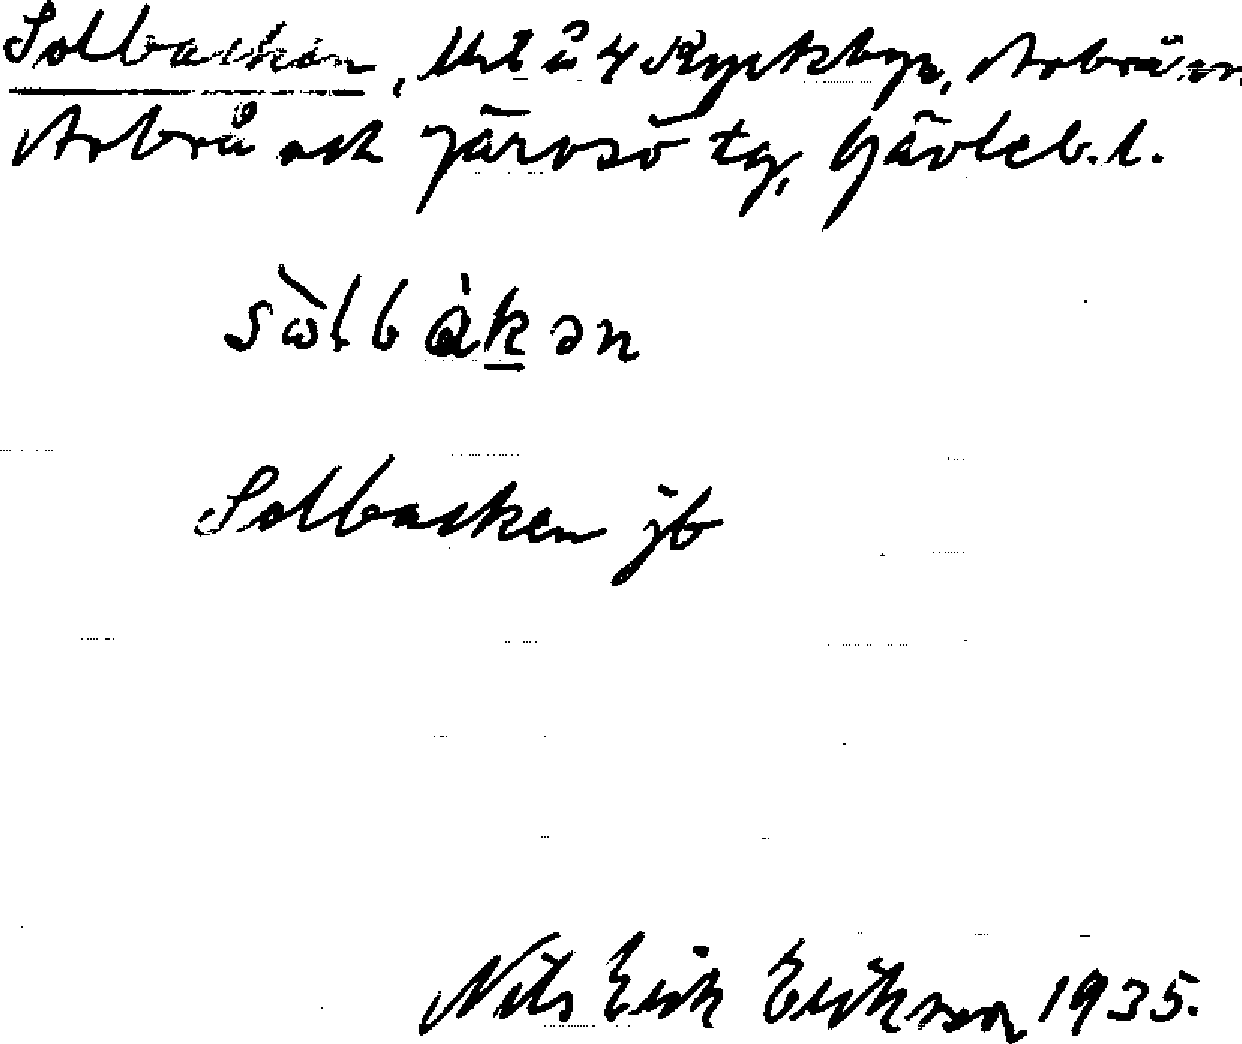 Solbacken, lht å 4 Kyrkbyn, Arbrå sn,
Arbrå och Järvsö tg, Gävleb. l.
sὼlbàk̲ən
Solbacken jb
Nils Erik Erikson 1935.